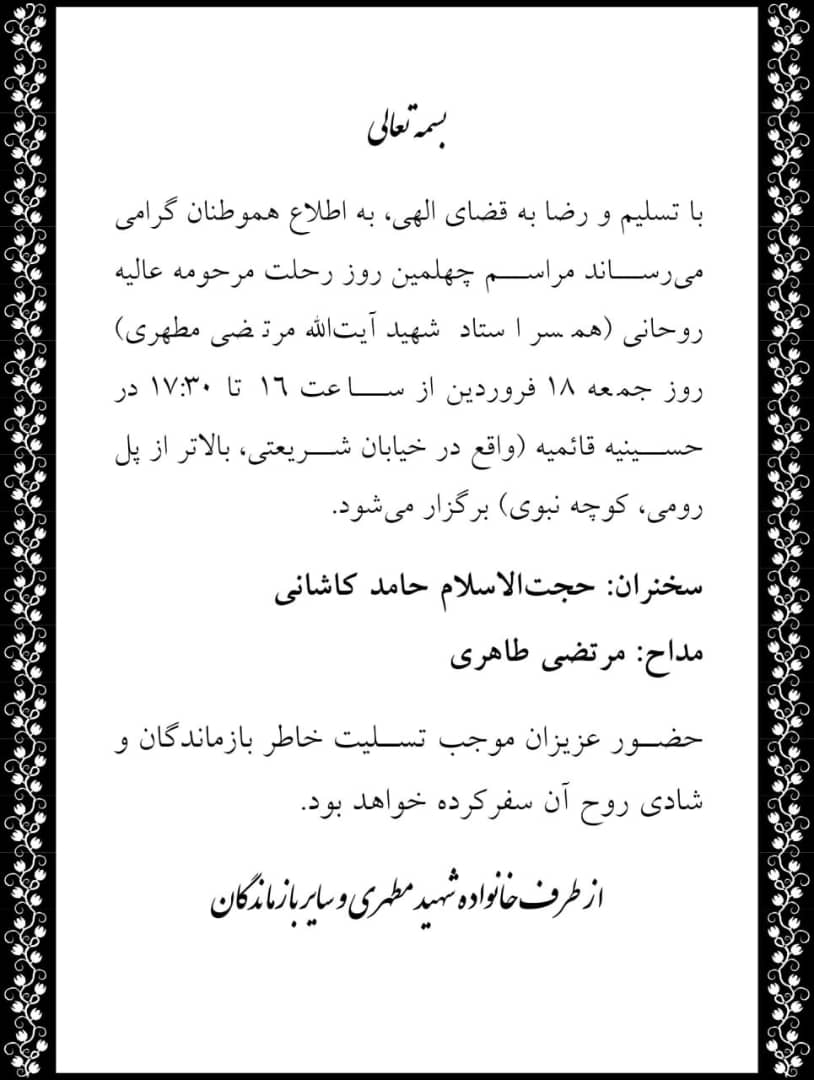 بسمه تعالی
با تسلیم و رضا به قضای الهی، به اطلاع هموطنان گرامی
می‌رساند مراسم چهلمین روز رحلت مرحومه عالیه
روحانی (همسر استاد شهید آیت‌الله مرتضی مطهری)
روز جمعه ۱۸ فروردین از ساعت ۱۶ تا ۱۷:۳۰ در
حسینیه قائمیه (واقع در خیابان شریعتی، بالاتر از پل
رومی، کوچه نبوی) برگزار می‌شود.
سخنران: حجت‌الاسلام حامد کاشانی
مداح: مرتضی طاهری
حضور عزیزان موجب تسلیت خاطر بازماندگان و
شادی روح آن سفرکرده خواهد بود.
از طرف خانواده شهید مطهری و سایر بازماندگان